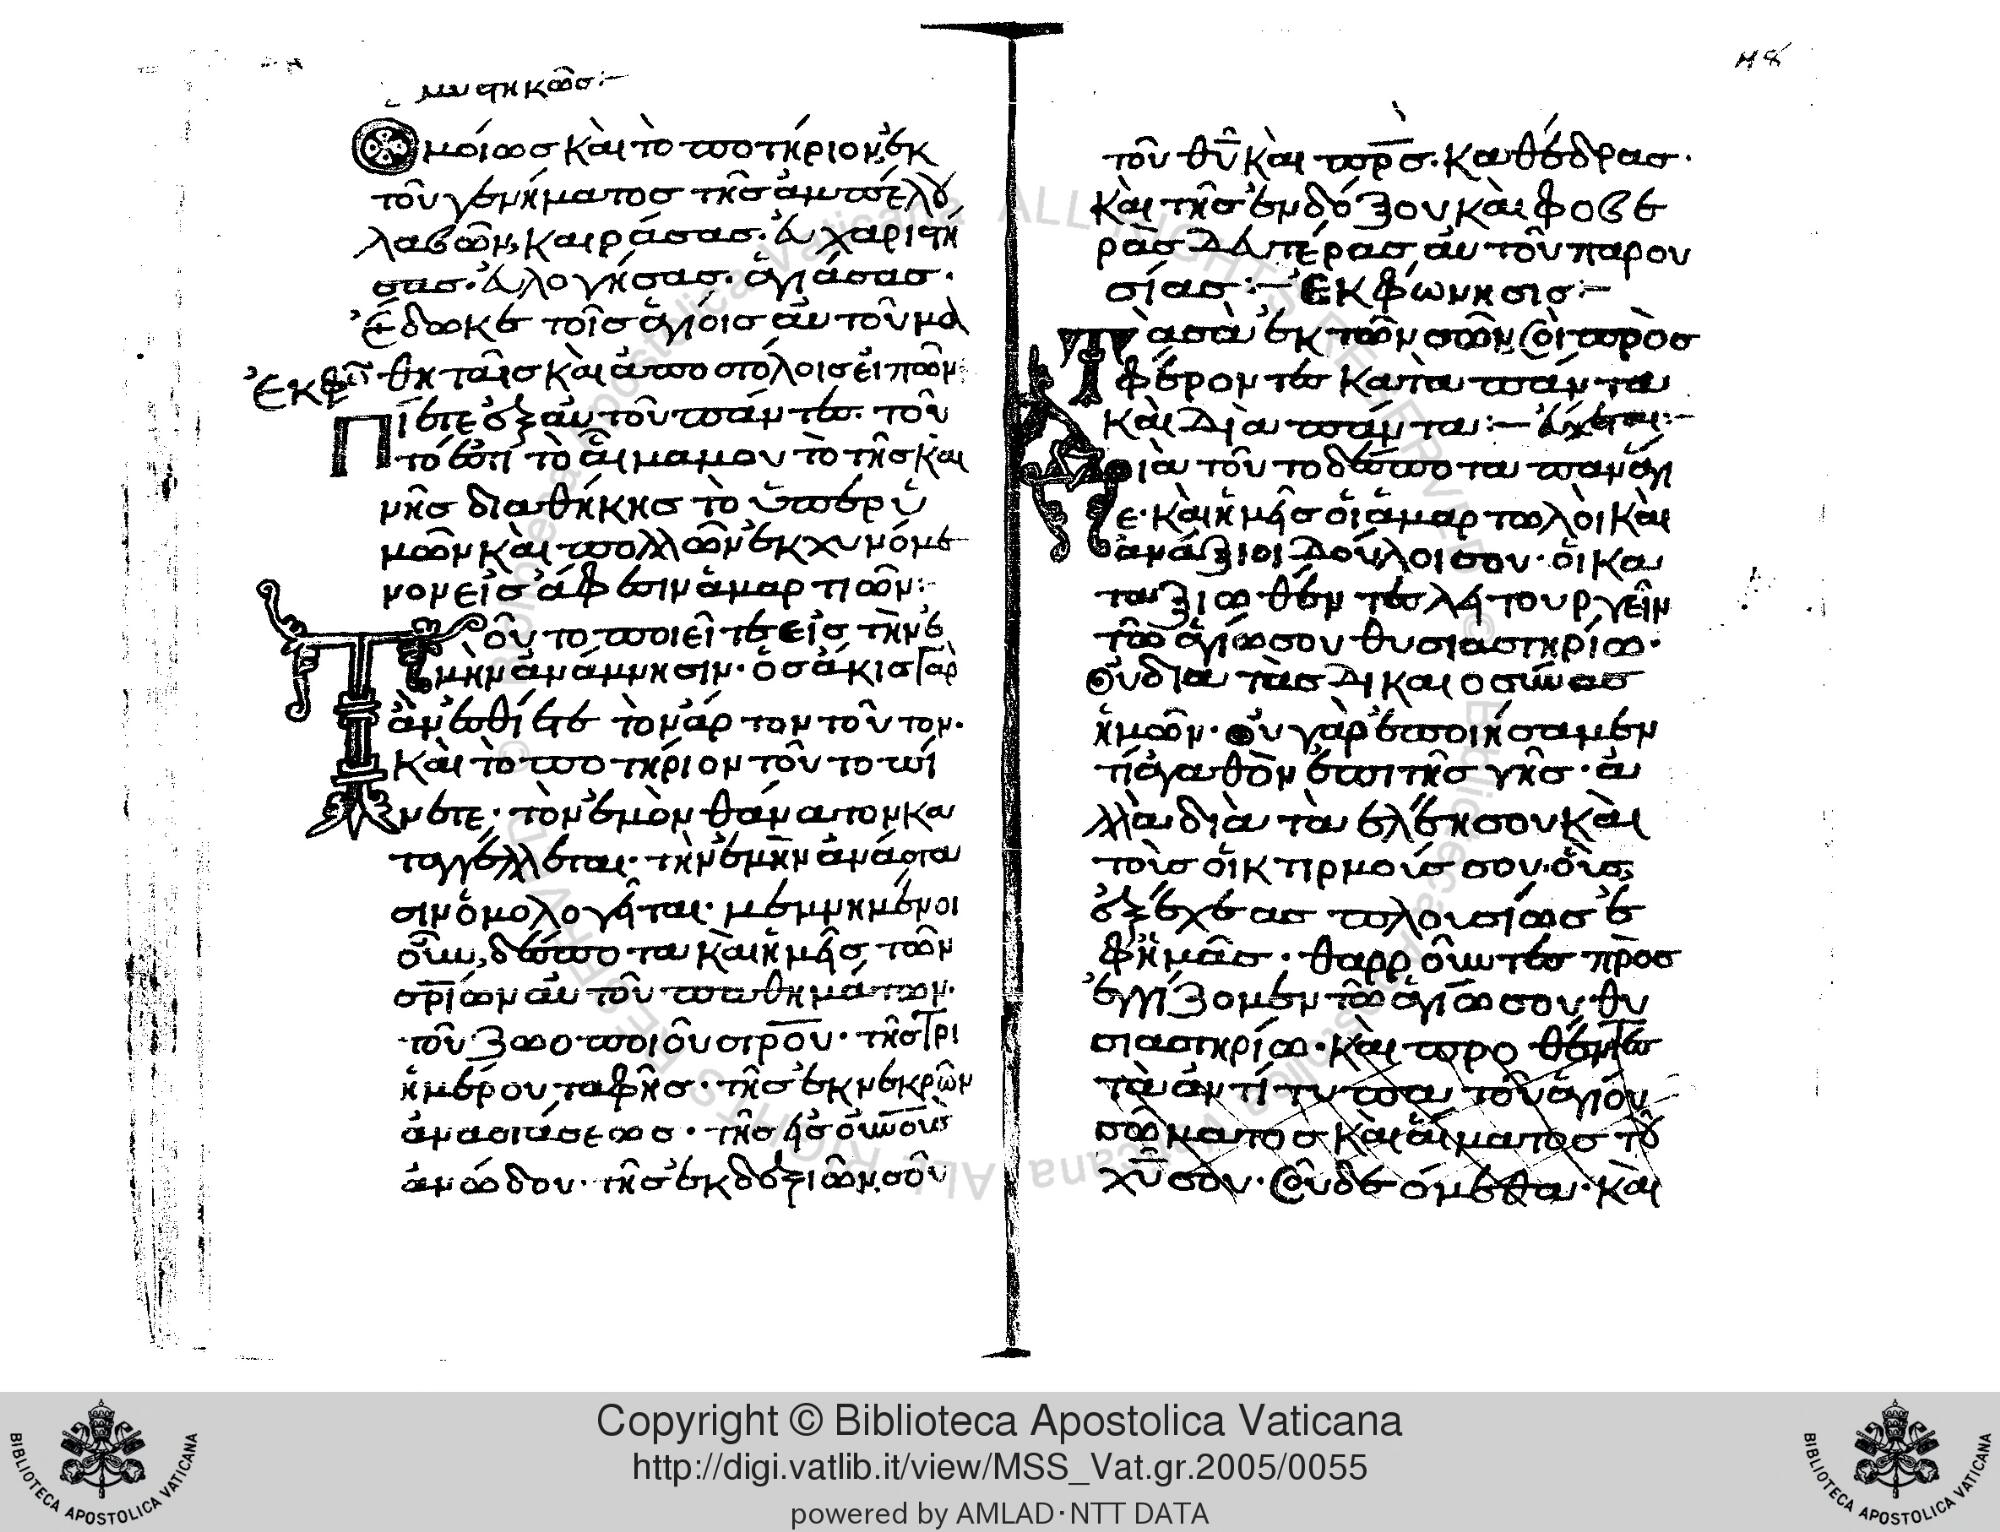 μυστικῶς:—
Ὁμοίωσ καὶ τὸ ποτήριον ἐκ
τοῦ γενήματοσ τῆσ ἀμπέλου
λαβών, κεράσασ· εὐχαριστή
σασ· εὐλογήσασ· ἁγιάσασ·
ἔδωκε τοῖσ ἁγίοισ αὐτοῦ μα
θηταῖσ καὶ ἀποστόλοισ εἰπών:
Ἐκφώ
Πίετε ἐξ αὐτοῦ πάντεσ· τοῦ
τό ἐστι τὸ αἷμα μου τὸ τῆσ και
νῆσ διαθήκησ τὸ ὑπὲρ ὑ
μῶν καὶ πολλῶν ἐκχυνόμε
νον εἰσ ἄφεσιν ἁμαρτιῶν:
Τοῦτο ποιεῖτε εἰσ τὴν ἐ
μὴν ἀνάμνησιν· ὁσάκισ γὰρ
ἂν ἐσθίετε τὸν ἄρτον τοῦτον·
καὶ τὸ ποτήριον τοῦτο πί
νετε· τὸν ἐμὸν θάνατον κα
ταγγέλλεται· τὴν ἐμὴν ἀνάστα
σιν ὁμολογῆται· μεμνημένοι
οὖν, δέσποτα καὶ ἡμῆσ τῶν
σρίων αὐτοῦ παθημάτων·
τοῦ ζωοποιοῦ στρου· τῆσ τρι
ημέρου ταφῆσ· τῆσ ἐκ νεκρῶν
ἀναστάσεωσ· τῆσ εἰσ οὐνοὺσ
ἀνώδου· τῆσ ἐκ δεξιῶν σοῦ
τοῦ θυ καὶ πρσ· καθέδρασ·
καὶ τῆσ ἐνδόξου καὶ φοβε
ρᾶσ δευτέρασ αὐτοῦ παρου
σίασ:— Ἐκφώνησισ:—
Τὰ σὰ ἐκ τῶν σῶν σοὶ προσ
φέροντεσ κατὰ πάντα
καὶ διὰ πάντα:— εὔχεται:—
Διὰ τοῦτο δέσποτα πανάγι
ε· καὶ ἡμῆσ οἱ ἁμαρτωλοὶ καὶ
ἀνάξιοι δοῦλοι σου· οἱ κα
ταξιωθέντεσ λειτουργεῖν
τῶ ἁγίω σου θυσιαστηρίω·
οὐ διὰ τὰσ δικαιοσύνασ
ἡμῶν· οὐ γὰρ ἐποιήσαμεν
τί ἀγαθὸν ἐπὶ τῆσ γῆσ· ἀ
λλὰ διὰ τὰ ἐλέη σου καὶ
τοὺσ οἰκτιρμούσ σου· οὓσ
ἐξέχεασ πλουσίωσ ἐ
φ ἡμᾶσ· θαρροῦντεσ προσ
εγγίζομεν τῶ ἁγίω σου θυ
σιαστηρίω· καὶ προθέντεσ
τὰ ἀντίτυπα τοῦ ἁγίου
σώματοσ καὶ αἵματοσ τοῦ
χυ σου· σοῦ δεόμεθα· καὶ
Copyright © Biblioteca Apostolica Vaticana
http://digi.vatlib.it/view/MSS_Vat.gr.2005/0055
powered by AMLAD·NTT DATA
BIBLIOTECA APOSTOLICA VATICANA
BIBLIOTECA APOSTOLICA VATICANA